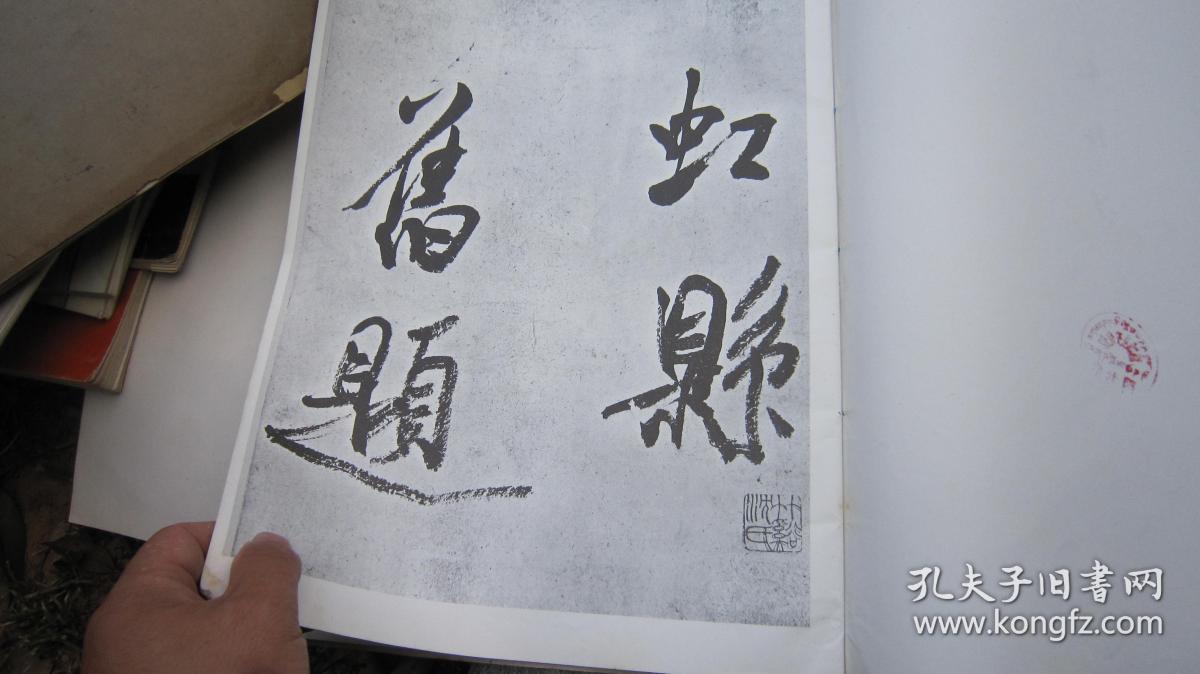 虹縣
舊題
孔夫子旧书网
www.kongfz.com